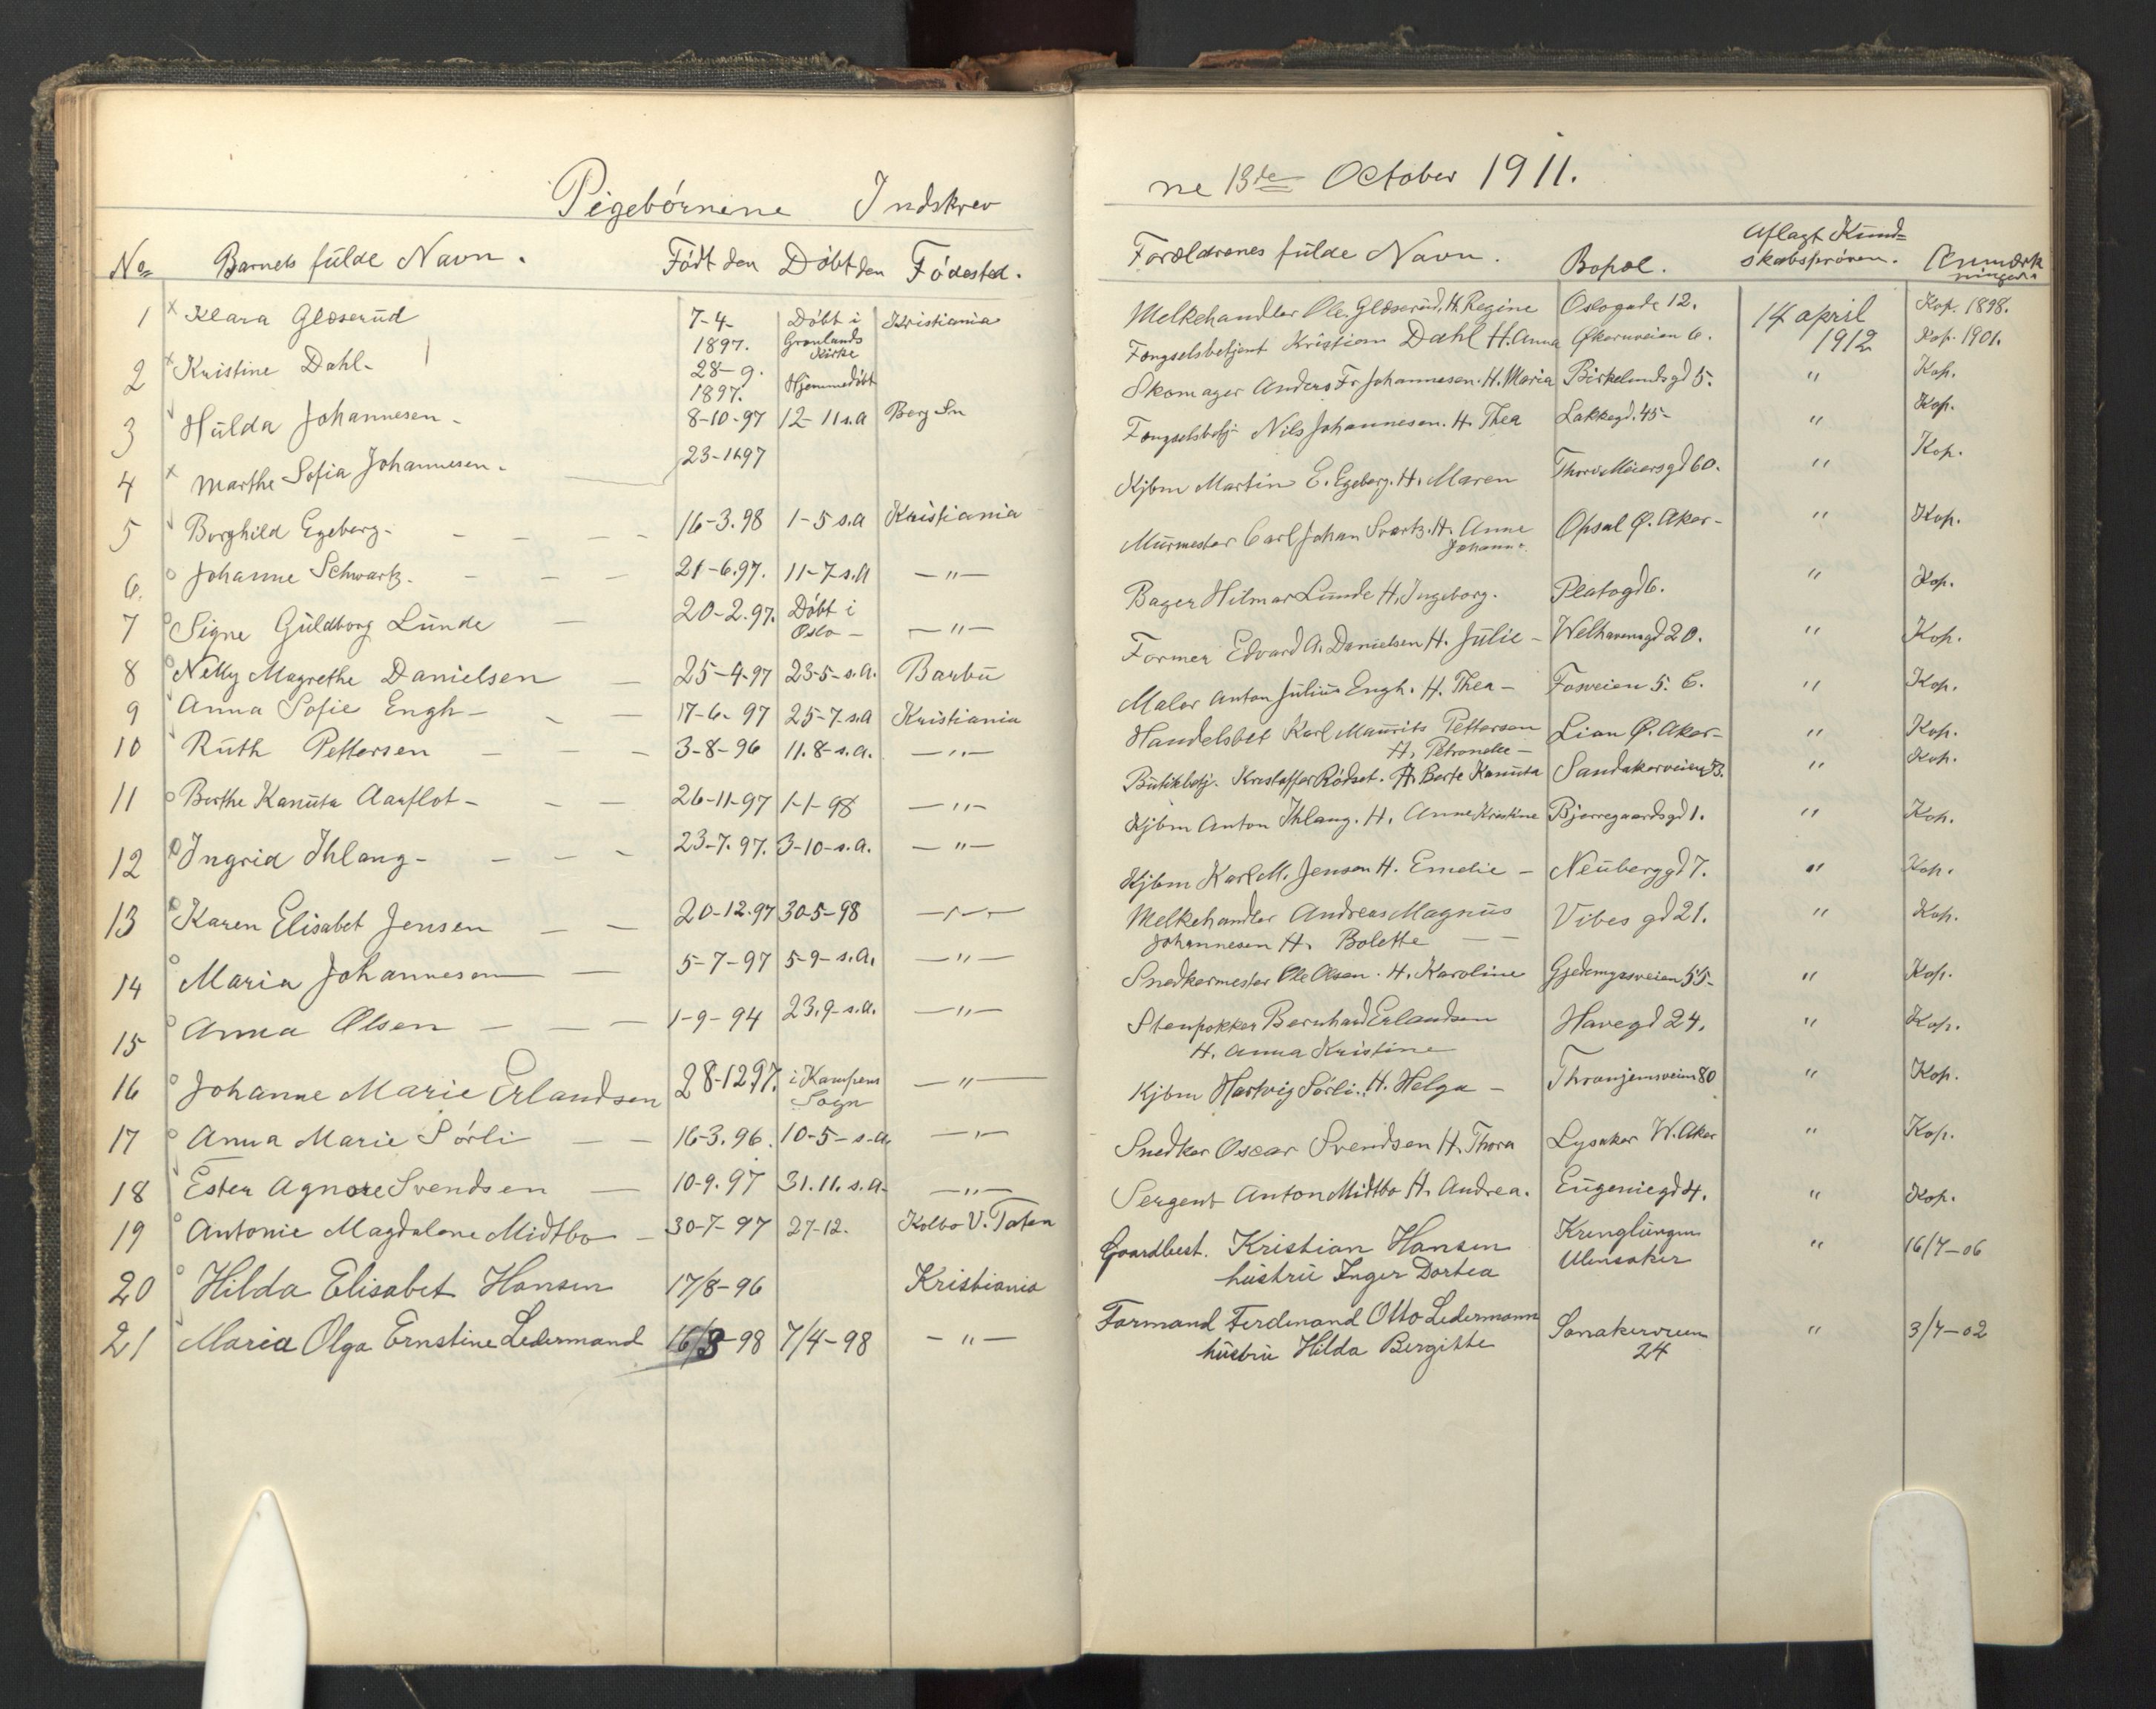 Pigebörnene Indskrev
No Barnets fulde Navn. Födt den Döbt den Födested.
1 x Klara Glæserud 7-4- Döbt i Kristiania
1897. Grønlands
Kirke
2 x Kristine Dahl- 28-9.
1897. Hjemmedöbt
3 Hulda Johannesen- 8-10-97 12-11 s.a Berg Sn
4 x Marthe Sofia Johannesen- 23-1-97
5 Borghild Egeberg- - - - - 16-3.98 1-5 s.a Kristiania
6. o Johanne Schwartz. - - - 21-6.97. 11-7 s.a -"-
7 o Signe Guldborg Lunde - 20-2.97. Döbt i
Oslo - -"-
8 o Nelly Magrethe Danielsen - 25-4-97 23-5-s.a. Barbu
9 Anna Sofie Engh- - - 17-6-97 25-7-s.a Kristiania
10 Ruth Pettersen - - - 3-8-96 11.8-s.a. -"-
11 o Berthe Kanuta Aarflot- - - 26-11-97 1-1-98 -"-
12 o Ingrid Ihlang- - - - 23-7.97. 3-10-s.a. -"-
13 o Karen Elisabet Jensen - - 20-12.97 30-5-98 -"-
14 o Maria Johannesen - 5-7-97 5-9-s.a. -"-
15 o Anna Olsen - - - 1-9-94 23.9-s.a. -"-
16 o Johanne Marie Erlandsen 28-12.97. i Kampens -"-
Sogn
17 o Anna Marie Sörli - - 16-3.96. 10-5-s.a. -"-
18 Ester Agnore Svendsen - 10-9.97 31.11. s.a. -"-
19 o Antonie Magdalene Midtbo - 30-7-97 27-12. Kolbo V. Toten
20 o Hilda Elisabet Hansen 17/8-96 Kristiania
21 Maria Olga Ernstine Ledermand 16/3-98 7/4-98 -"-
ne 13de October 1911.
Forældrenes fulde Navn. Bopæl. Aflagt Kund=
skabsprøven. Anmærk
ninger.
Melkehandler Ole Glæserud, H. Regine Oslogade 12. 14 april Kop. 1898.
Fængselsbetjent Kristian Dahl H. Anna Økernveien 6. 1912 Kop. 1901.
Skomager Anders Fr. Johannesen. H. Maria Birkelundsgd 5. " Kop.
Fængselsbetj- Nils Johannesen. H. Thea Lakkegd. 45- " Kop.
Kjbm Martin E. Egeberg. H. Maren Thorv Meiersgd 60. " Kop.
Murmester Carl Johan Svartz. H. Anne Opsal Ø. Aker- " Kop.
Johanne.
Bager Hilmar Lunde H. Ingeborg. Platogd 6. " Kop.
Former Edvard A. Danielsen H. Julie - Welhavensgd 20. " Kop.
Maler Anton Julius Engh. H. Thea - Fosveien 5. C. " Kop.
Handelsbet Karl Mauritz Pettersen Lian Ø. Aker- " Kop.
H. Petronelle -
Butikbetj. Kristoffer Rödset. H. Berte Kanuta Sandakerveien 53. " Kop.
Kjbm Anton Ihlang. H. Anne Kristine Bjerregaardsgd 1. " Kop.
Kjbm Karl M. Jensen H. Emelie - Neuberggd 7. " Kop.
Melkehandler Andreas Magnus Vibes gd 21. " Kop.
Johannesen H. Bolette - -
Snedkermester Ole Olsen. H. Karoline Gjedemyrsveien 55- " Kop.
Stenpokker Bernhard Erlandsen Havegd 24. " Kop.
H. Anna Kristine
Kjbm Hartvig Sörli. H. Helga - Thronjemsveien 80 " Kop.
Snedker Oscar Svendsen H. Thora Lysaker W. Aker " Kop.
Sergent Anton Midtbo H. Andrea. Eugeniegd 4. " Kop.
Gaardbest. Kristian Hansen " 16/7-06
hustru Inger Dortea Ulensaker
Formand Ferdinand Otto Ledermann " 3/7-02
hustru Hilda Bergitte 24